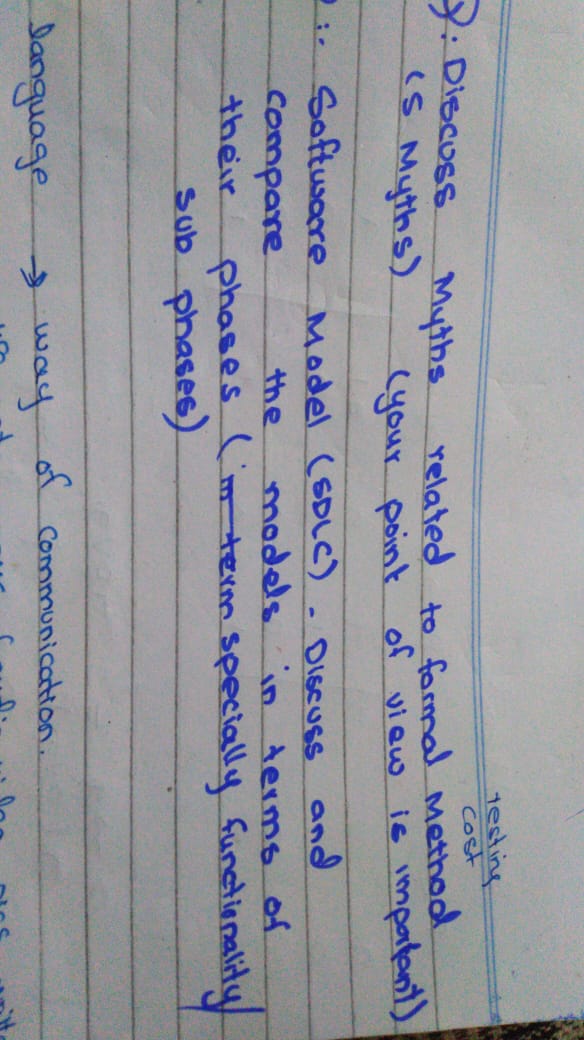 testing
cost
Q: Discuss Myths related to formal Method
(5 Myths) (your point of view is important)
:- Software Model (SDLC). Discuss and
compare the models in terms of
their phases (in term specially functionality/
sub phases)
language → way of communication.